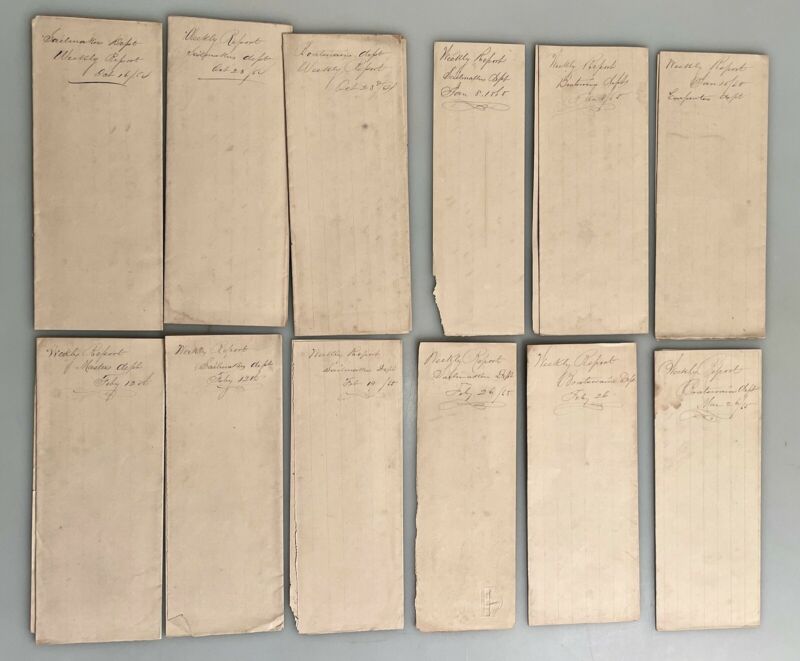 Sailmaker Dept
Weekly Report
Oct 16/64
Weekly Report
Sailmakers dept
Oct 23/64
Boatswains dept
Weekly Report
Oct 23d/64
Weekly Report
Sailmakers Dept
Jan 8. 1865
Weekly Report
Boatswains dept
Jan 8/65
Weekly Report
Jan 15/65
Carpenters Dept
Weekly Report
of Master dept
Feby 12th
Weekly Report
Sailmakers dept
Feby 12th
Weekly Report
Sailmakers Dept
Feb 19/65
Weekly Report
Sailmakers Dept
Feby 26/65
Weekly Report
Boatswains Dept
Feby 26
Weekly Report
Boatswains dept
Mar 26/65